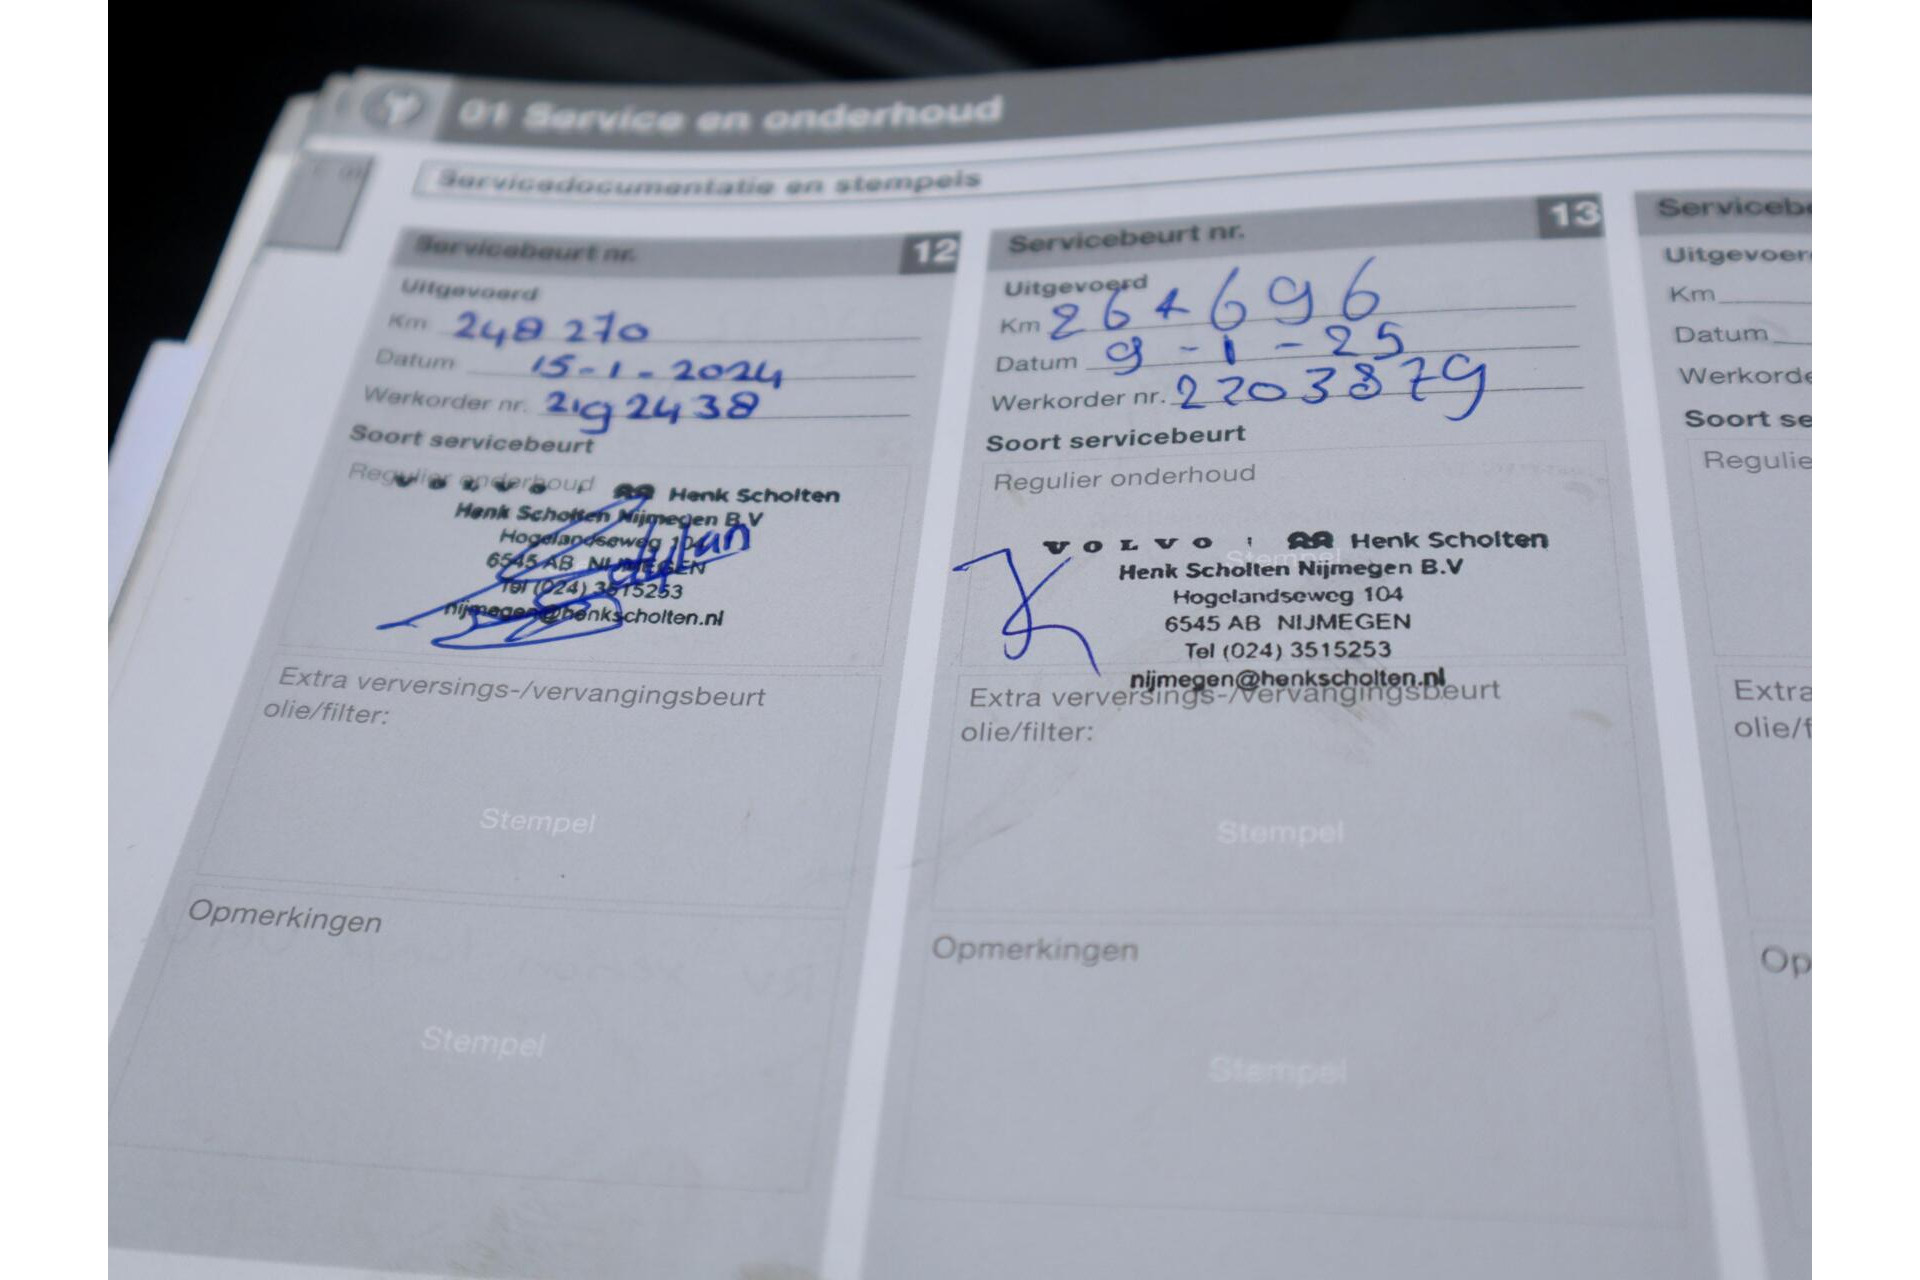 01 Service en onderhoud
Servicedocumentatie en stempels
Servicebeurt nr. 12
Uitgevoerd
Km 248 270
Datum 15-1-2024
Werkorder nr. 2192438
Soort servicebeurt
Regulier onderhoud
VOLVO Henk Scholten
Henk Scholten Nijmegen B.V
Hogelandseweg 104
6545 AB NIJMEGEN
Tel (024) 3515253
nijmegen@henkscholten.nl
Extra verversings-/vervangingsbeurt
olie/filter:
Stempel
Opmerkingen
Stempel
Servicebeurt nr. 13
Uitgevoerd
Km 264696
Datum 9-1-25
Werkorder nr. 2203879
Soort servicebeurt
Regulier onderhoud
Stempel
VOLVO Henk Scholten
Henk Scholten Nijmegen B.V
Hogelandseweg 104
6545 AB NIJMEGEN
Tel (024) 3515253
nijmegen@henkscholten.nl
Extra verversings-/vervangingsbeurt
olie/filter:
Stempel
Opmerkingen
Stempel
Serviceb
Uitgevoer
Km
Datum
Werkorde
Soort se
Regulie
Extra
olie/f
Op